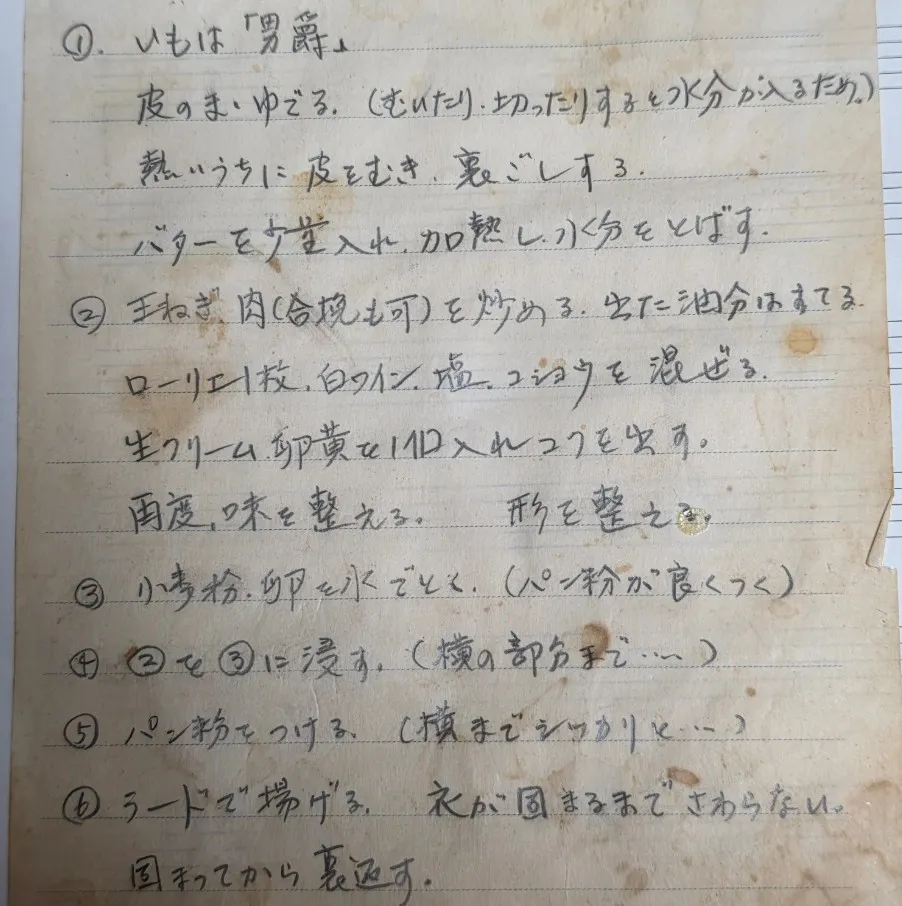 ①. いもは「男爵」
皮のまゝゆでる。(むいたり、切ったりすると水分が入るため。)
熱いうちに皮をむき、裏ごしする。
バターを少量入れ、加熱し、水分をとばす。
② 玉ねぎ、肉(合挽も可)を炒める。出た油分はすてる。
ローリエ1枚、白ワイン、塩、コショウを混ぜる。
生クリーム、卵黄を1個入れコクを出す。
再度、味を整える。 形を整える。
③ 小麦粉、卵を水でとく。(パン粉が良くつく)
④ ②を③に浸す。(横の部分まで‥‥)
⑤ パン粉をつける。(横までシッカリと‥‥)
⑥ ラードで揚げる。 衣が固まるまでさわらない。
固まってから裏返す。